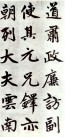 道肅政廉訪副
使其元兄鐸亦
朝列大夫雲南